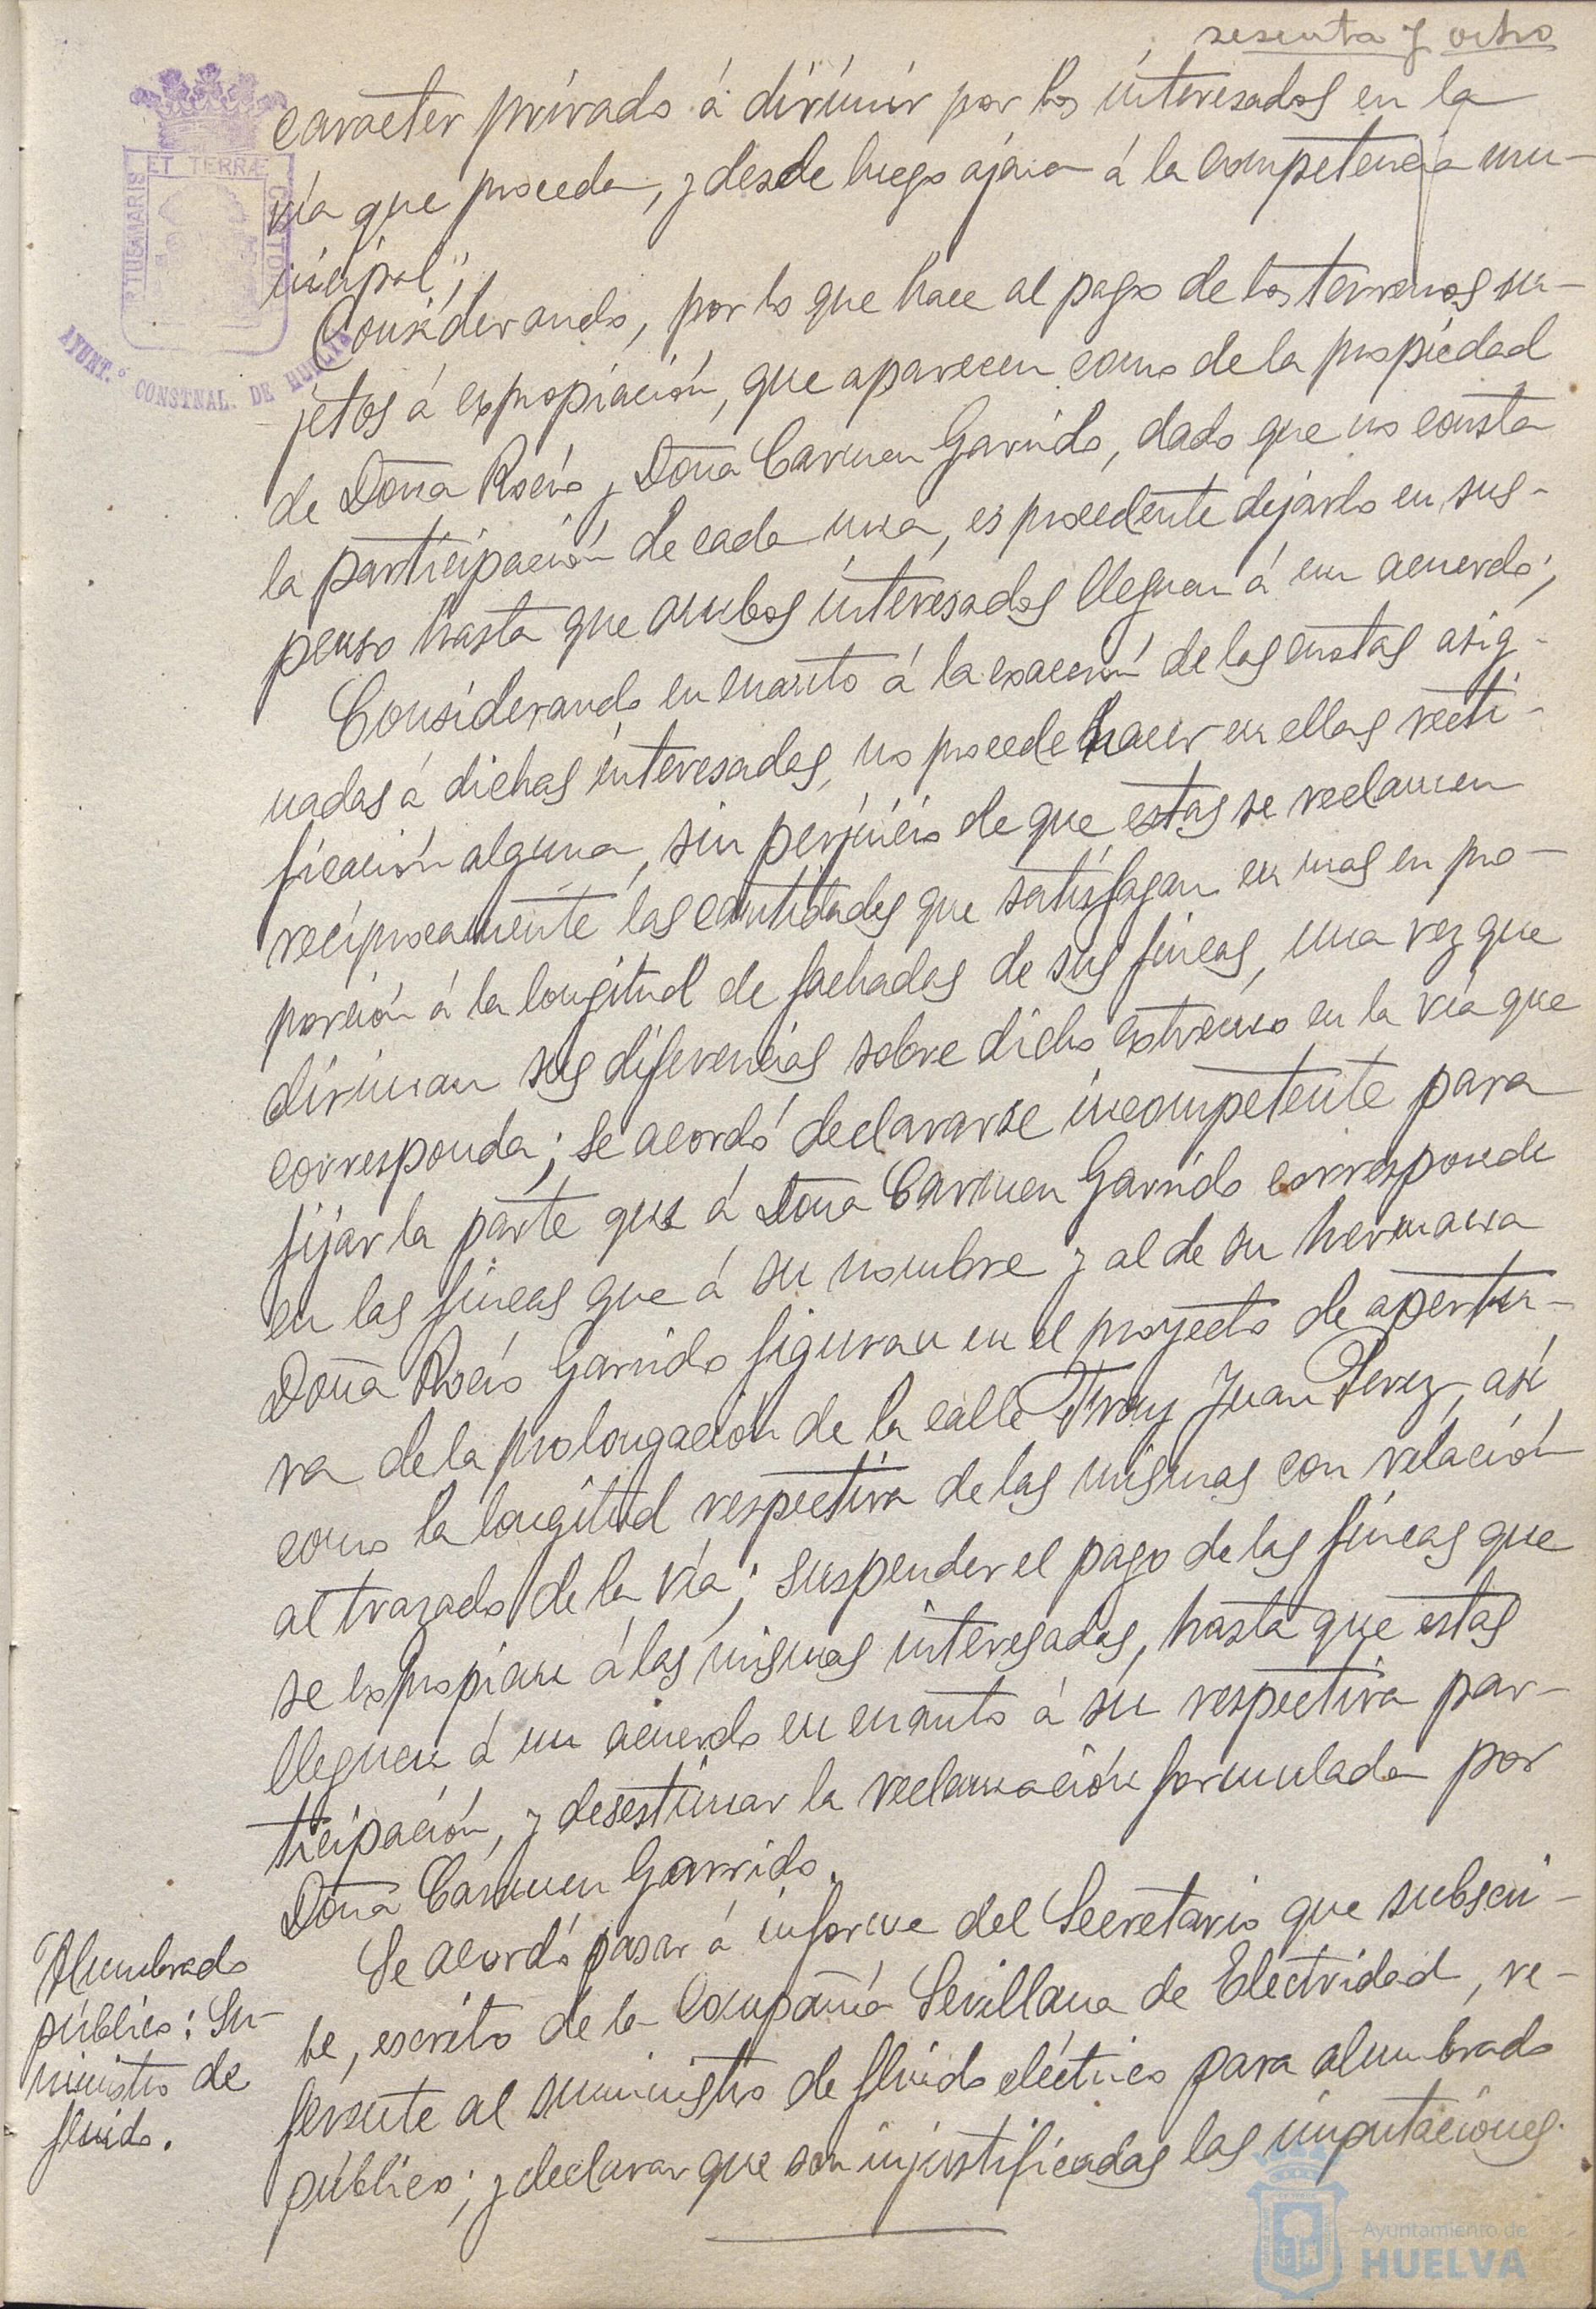 sesenta y ocho
caracter privado á dirimir por los interesados en la
vía que proceda, y desde luego ajena á la competencia mu-
nicipal";
Considerando, por lo que hace al pago de los terrenos su-
jetos á expropiación, que aparecen como de la propiedad
de Doña Rocío y Doña Carmen Garrido, dado que no consta
la participación de cada una, es procedente dejarlo en sus-
penso hasta que ambos interesados lleguen á un acuerdo;
Considerando en cuanto á la exacción de las cuotas asig-
nadas á dichas interesadas, no procede hacer en ellas recti-
ficación alguna, sin perjuicio de que estas se reclamen
recíprocamente las cantidades que satisfagan en mas en pro-
porción á la longitud de fachadas de sus fincas, una vez que
diriman sus diferencias sobre dicho extremo en la vía que
corresponda; se acordó declararse incompetente para
fijar la parte que á Doña Carmen Garrido corresponde
en las fincas que á su nombre y al de su hermana
Doña Rocío Garrido figuran en el proyecto de apertu-
ra de la prolongación de la calle Fray Juan Perez, así
como la longitud respectiva de las mismas con relación
al trazado de la vía; suspender el pago de las fincas que
se expropian á las mismas interesadas, hasta que estas
lleguen á un acuerdo en cuanto á su respectiva par-
ticipación, y desestimar la reclamación formulada por
Doña Carmen Garrido.
Se acordó pasar á informe del Secretario que subscri-
be, escrito de la Compañía Sevillana de Electridad, re-
ferente al suministro de fluido eléctrico para alumbrado
público; y declarar que son injustificadas las imputaciones
Alumbrado
público: Su-
ministro de
fluido.
ET TERRÆ
CUSTODIA
TUS MARIS
AYUNT.º CONSTNAL. DE HUELVA
Ayuntamiento de
HUELVA